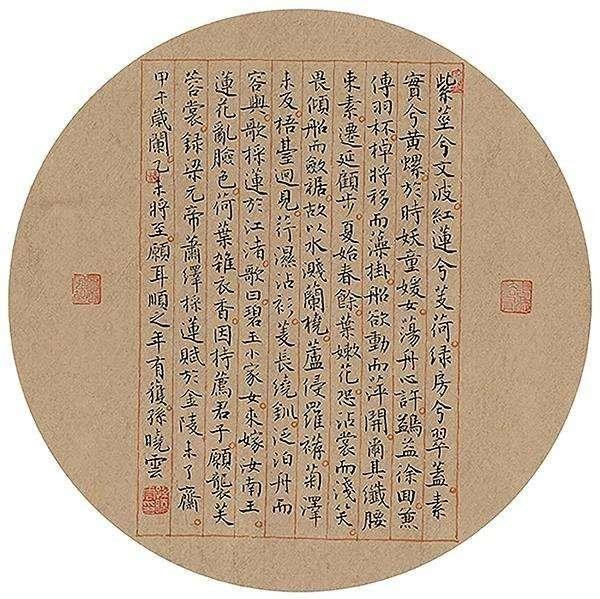 紫莖兮文波紅蓮兮芰荷緑房兮翠蓋素
實兮黃螺於時妖童媛女蕩舟心許鷁徐回兼
傳羽杯棹將移而藻掛船欲動而萍開爾其纖腰
束素遷延顧步夏始春餘葉嫩花恐沾裳而淺笑
畏傾船而斂裾故以水濺蘭橈蘆侵羅襪菊澤
未反梧臺迥見荇濕沾衫菱長繞釧泛泊舟而
容與歌採蓮於江渚歌曰碧玉小家女來嫁汝南王
蓮花亂臉色荷葉雜衣香因持薦君子願襲芙
蓉裳録梁元帝蕭繹採蓮賦於金陵未了齋
甲午歲闌乙未將至願耳順之年有獲孫曉雲